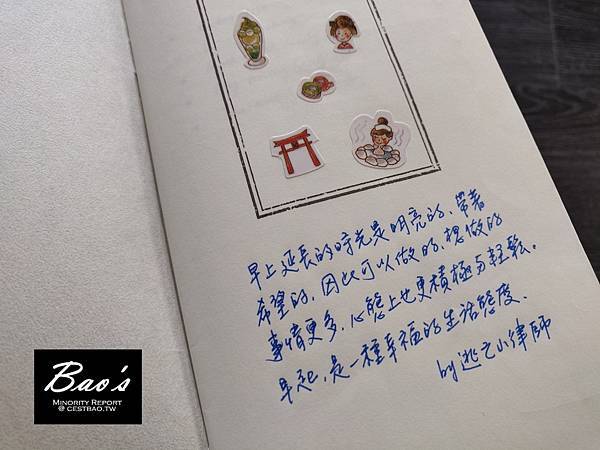 早上延長的時光是明亮的、帶著
希望的，因此可以做的、想做的
事情更多，心態上也更積極与輕鬆。
早起，是一種幸福的生活態度。
by 逃亡小律師
Bao's
MINORITY REPORT
@ CESTBAO.TW